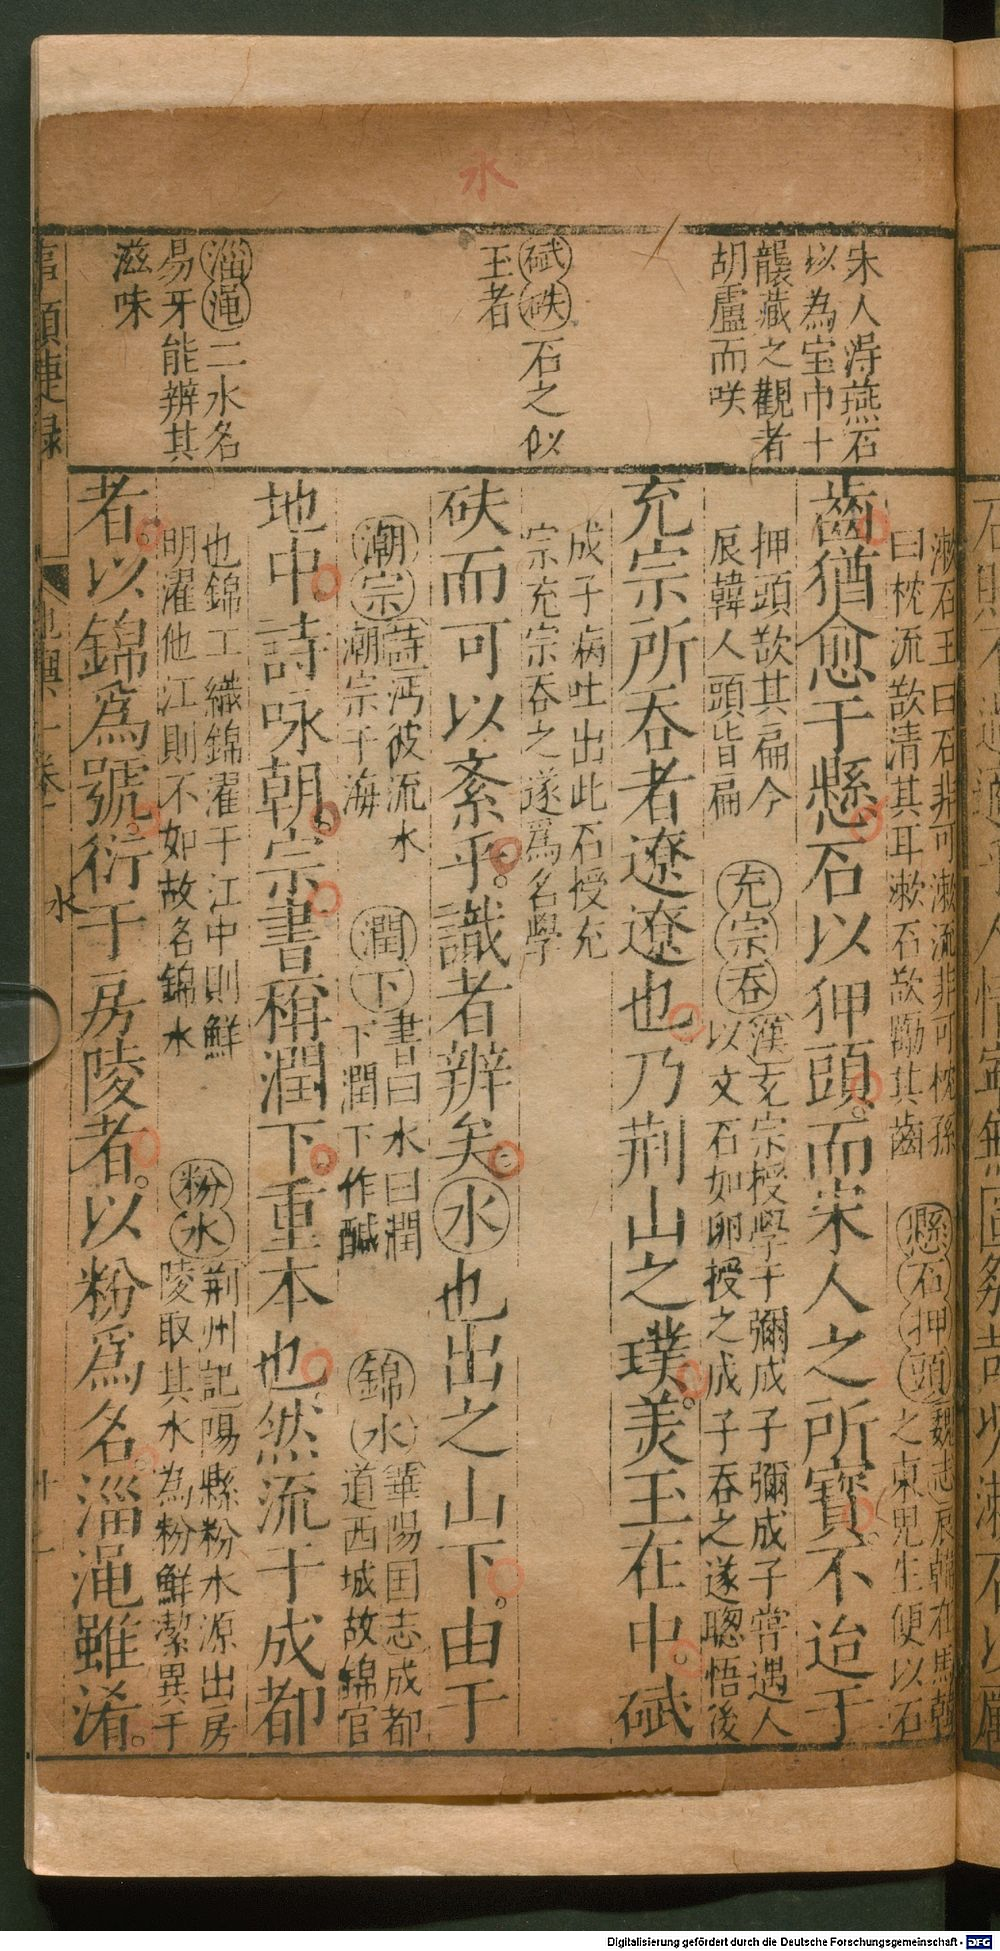 水
宋人淂燕石
以為宝巾十
襲藏之觀者
胡盧而咲
碔砆石之似
玉者
淄渑二水名
易牙能辨其
滋味
漱石王曰石非可漱流非可枕孫
曰枕流欲清其耳漱石欲勵其齒
懸石押頭魏志辰韓在馬韓
之東児生便以石
齒猶愈于懸石以狎頭而宋人之所寶不迨于
押頭欲其扁今
辰韓人頭皆扁
充宗吞漢玄宗授學于彌成子彌成子嘗遇人
以文石如卵授之成子吞之遂聰悟後
充宗所吞者遼遼也乃荆山之璞美玉在中碔
成子病吐出此石授充
宗充宗吞之遂為名學
砆而可以紊乎識者辨矣水也出之山下由于
潮宗詩沔彼流水
潮宗于海
潤下書曰水曰潤
下潤下作醎
錦水華陽国志成都
道西城故錦官
地中詩咏朝宗書稱潤下重本也然流于成都
也錦工織錦濯于江中則鮮
明濯他江則不如故名錦水
粉水荆州記陽縣粉水源出房
陵取其水為粉鮮潔異于
者以錦爲號衍于房陵者以粉爲名淄渑雖淆
水
Digitalisierung gefördert durch die Deutsche Forschungsgemeinschaft - DFG